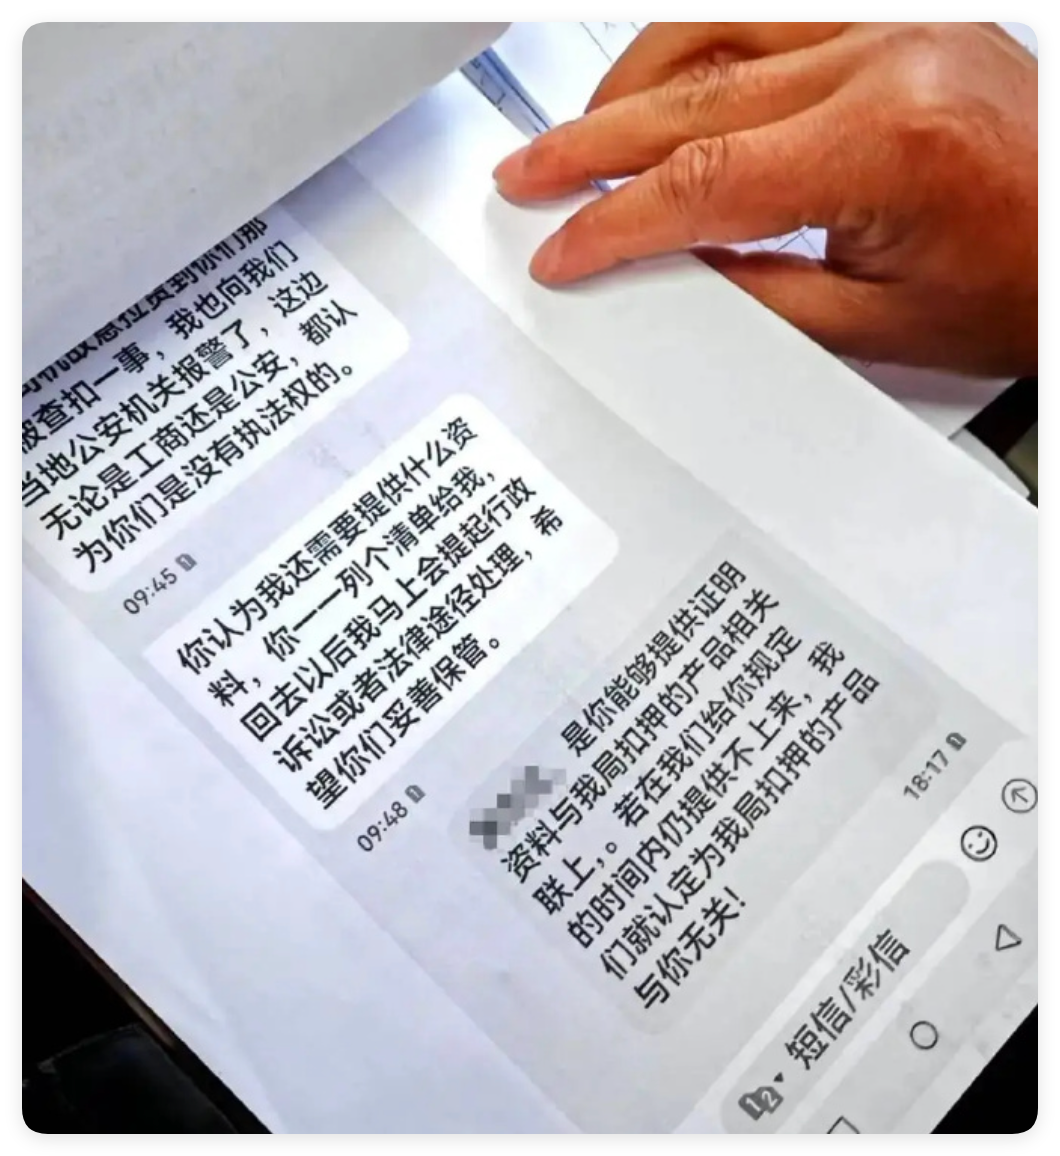 司机故意拉货到你们那
被查扣一事，我也向我们
当地公安机关报警了，这边
无论是工商还是公安，都认
为你们是没有执法权的。
09:45
你认为我还需要提供什么资
料，你一一列个清单给我，
回去以后我马上会提起行政
诉讼或者法律途径处理，希
望你们妥善保管。
09:48
是你能够提供证明
资料与我局扣押的产品相关
联上，。若在我们给你规定
的时间内仍提供不上来，我
们就认定为我局扣押的产品
与你无关！
18:17
短信/彩信